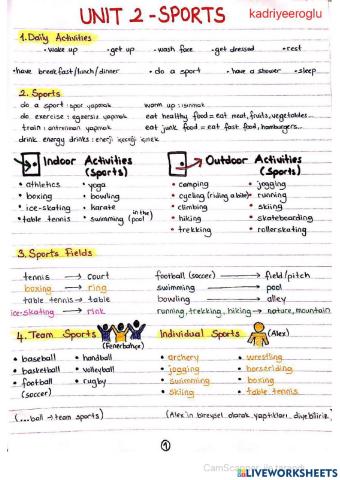 UNIT 2 - SPORTS kadriyeeroglu
1. Daily Activities
• wake up • get up • wash face • get dressed • rest
• have breakfast/lunch/dinner • do a sport • have a shower • sleep
2. Sports
do a sport : spor yapmak warm up : ısınmak
do exercise : egzersiz yapmak eat healthy food = eat meat, fruits, vegetables...
train : antrenman yapmak eat junk food = eat fast food, hamburgers...
drink energy drinks : enerji içeceği içmek
Indoor Activities (Sports) Outdoor Activities (Sports)
• athletics • yoga • camping • jogging
• boxing • bowling • cycling (riding a bike) • running
• ice-skating • karate • climbing • skiing
• table tennis • swimming (in the pool) • hiking • skateboarding
• trekking • rollerskating
3. Sports Fields
tennis → court football (soccer) → field/pitch
boxing → ring swimming → pool
table tennis → table bowling → alley
ice-skating → rink running, trekking, hiking → nature, mountain
4. Team Sports (Fenerbahçe) Individual Sports (Alex)
• baseball • handball • archery • wrestling
• basketball • volleyball • jogging • horseriding
• football (soccer) • rugby • swimming • boxing
• skiing • table tennis
(...ball → team sports) (Alex'in bireysel olarak yaptıkları diyebiliriz)
1
CamScanner ile tarandı
LIVEWORKSHEETS